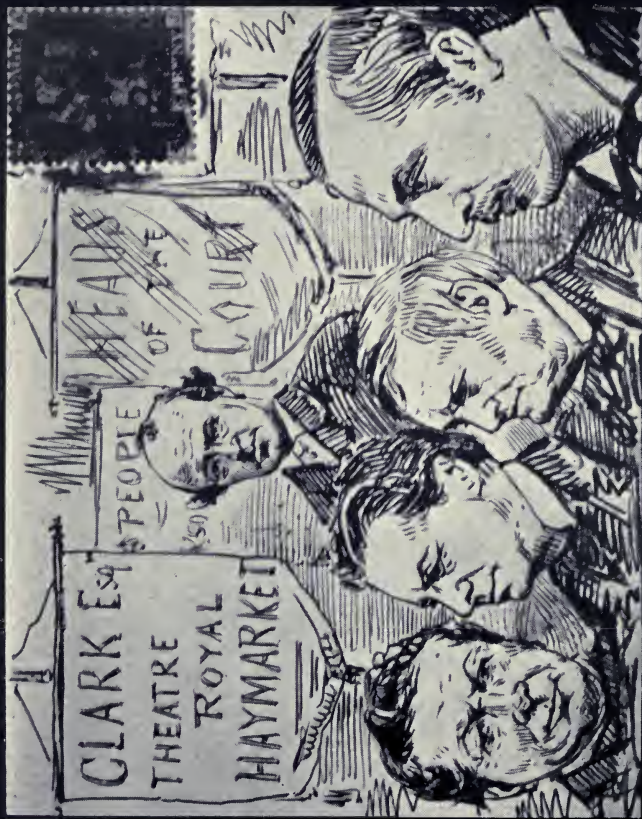 CLARK Esq
THEATRE
ROYAL
HAYMARKET
PEOPLE
HEADS
OF THE
COURT